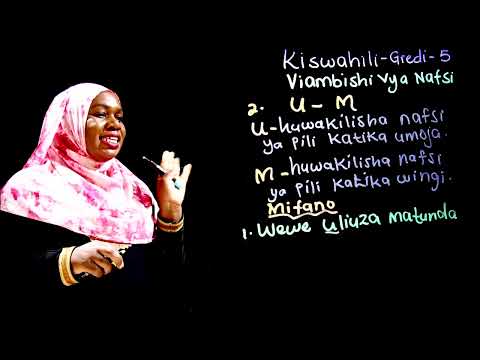 Kiswahili-Gredi-5
Viambishi vya Nafsi
2. U - M
U-huwakilisha nafsi
ya pili katika umoja.
M-huwakilisha nafsi
ya pili katika wingi.
Mifano
1. Wewe uliuza matunda